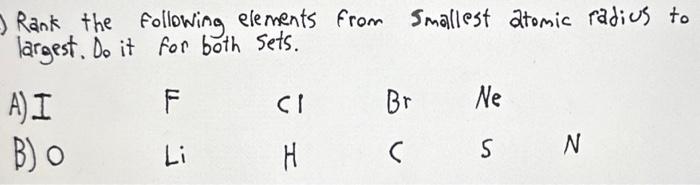 ) Rank the following elements from smallest atomic radius to
largest. Do it for both sets.
A) I F Cl Br Ne
B) O Li H C S N